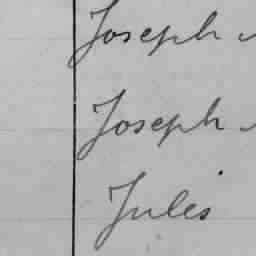 Joseph
Joseph
Jules